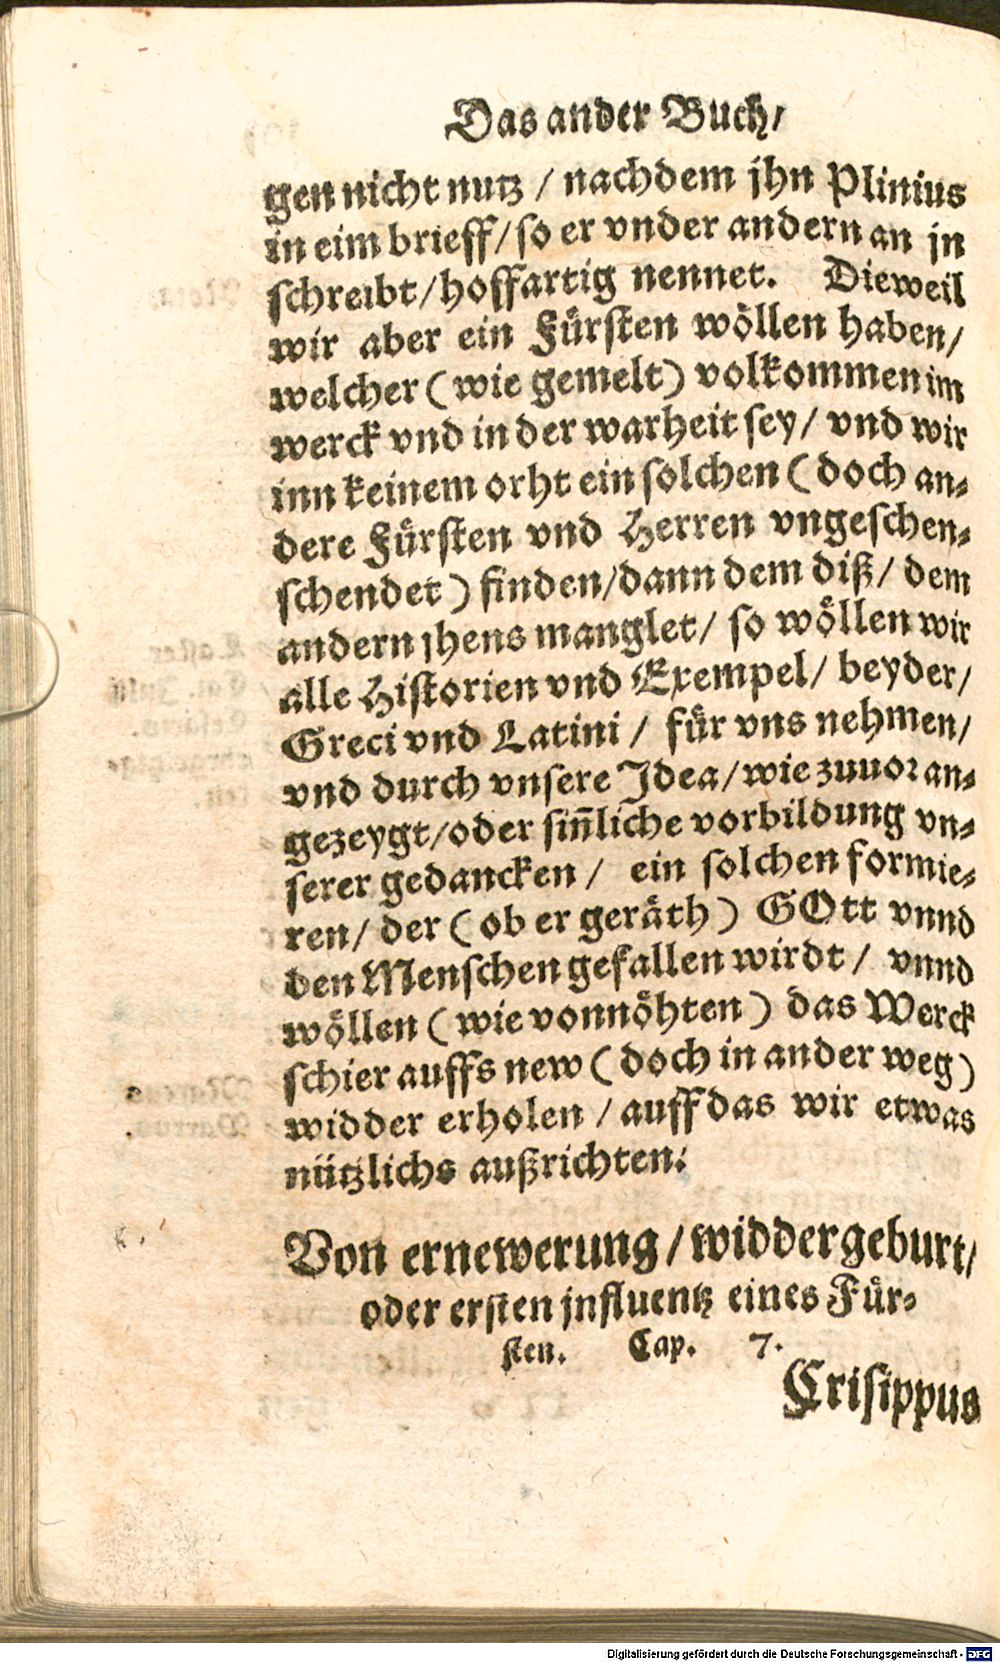 Das ander Buch/
gen nicht nutz / nachdem jhn Plinius
in eim brieff/so er vnder andern an jn
schreibt/hoffartig nennet. Dieweil
wir aber ein Fürsten wöllen haben/
welcher (wie gemelt) volkommen im
werck vnd in der warheit sey/ vnd wir
inn keinem orht ein solchen (doch an-
dere Fürsten vnd Herren vngeschen-
schendet) finden/dann dem diß/ dem
andern jhens manglet/ so wöllen wir
alle Historien vnd Exempel/ beyder/
Greci vnd Latini / für vns nehmen/
vnd durch vnsere Idea/wie zuuor an-
gezeygt/oder siñliche vorbildung vn-
serer gedancken / ein solchen formie-
ren/ der (ob er geräth) GOtt vnnd
den Menschen gefallen wirdt / vnnd
wöllen (wie vonnöhten) das Werck
schier auffs new (doch in ander weg)
widder erholen /auff das wir etwas
nützlichs außrichten.
Von ernewerung/widdergeburt/
oder ersten jnfluentz eines Für-
sten. Cap. 7.
Crisippus
Digitalisierung gefördert durch die Deutsche Forschungsgemeinschaft - DFG